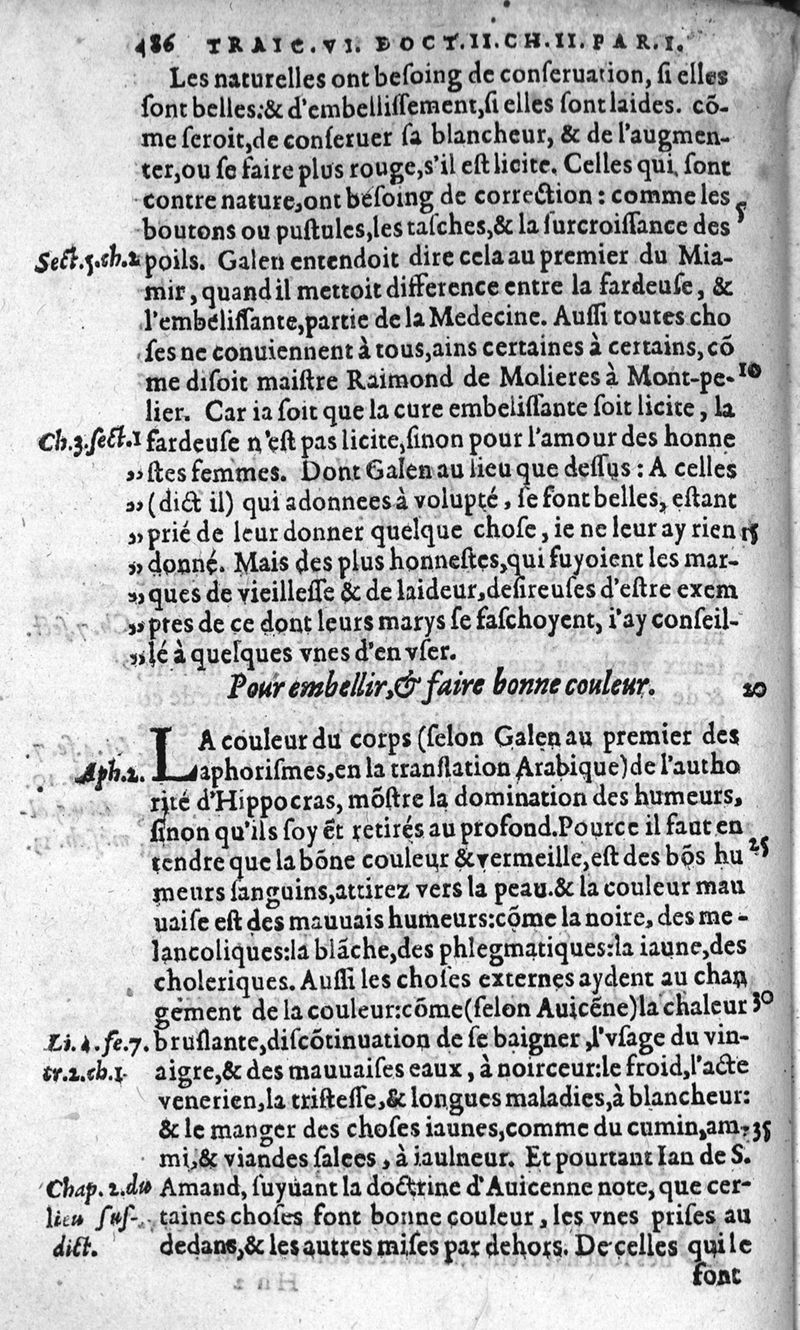 486 TRAIC.VI. DOCT.II.CH.II.PAR.I.
Les naturelles ont beſoing de conſeruation, ſi elles
ſont belles:& d'embelliſſement,ſi elles ſont laides. cõ-
me ſeroit,de conſeruer ſa blancheur, & de l'augmen-
ter,ou ſe faire plus rouge,s'il eſt licite. Celles qui ſont
contre nature,ont beſoing de correction : comme les
boutons ou puſtules,les taſches,& la ſurcroiſſance des 5
Sect.5.ch.2 poils. Galen entendoit dire cela au premier du Mia-
mir, quand il mettoit difference entre la fardeuſe, &
l'embéliſſante,partie de la Medecine. Auſſi toutes cho
ſes ne conuiennent à tous,ains certaines à certains, cõ
me diſoit maiſtre Raimond de Molieres à Mont-pe- 10
lier. Car ia ſoit que la cure embeliſſante ſoit licite, la
Ch.3.ſect.1 fardeuſe n'eſt pas licite,ſinon pour l'amour des honne
„ ſtes femmes. Dont Galen au lieu que deſſus : A celles
„ (dict il) qui adonnees à volupté, ſe font belles, eſtant
„ prié de leur donner quelque choſe, ie ne leur ay rien 15
„ donné. Mais des plus honneſtes,qui fuyoient les mar-
„ ques de vieilleſſe & de laideur,deſireuſes d'eſtre exem
„ ptes de ce dont leurs marys ſe faſchoyent, i'ay conſeil-
„ lé à quelques vnes d'en vſer.
Pour embellir,& faire bonne couleur. 20
LA couleur du corps (ſelon Galen au premier des
Aph.2. aphoriſmes,en la tranſlation Arabique) de l'autho
rité d'Hippocras, mõſtre la domination des humeurs,
ſinon qu'ils ſoyẽt retirés au profond.Pource il faut en
tendre que la bõne couleur & vermeille,eſt des bõs hu 25
meurs ſanguins,attirez vers la peau.& la couleur mau
uaiſe eſt des mauuais humeurs:cõme la noire, des me-
lancoliques:la blãche,des phlegmatiques:la iaune,des
choleriques. Auſſi les choſes externes aydent au chan
gement de la couleur:cõme(ſelon Auicẽne)la chaleur 30
Li.4.fe.7. bruſlante,diſcõtinuation de ſe baigner,l'vſage du vin-
tr.2.ch.1. aigre,& des mauuaiſes eaux, à noirceur:le froid,l'acte
venerien,la triſteſſe,& longues maladies,à blancheur:
& le manger des choſes iaunes,comme du cumin,am- 35
mi,& viandes ſalees, à iaulneur. Et pourtant Ian de S.
Chap. 2.du Amand, ſuyuant la doctrine d'Auicenne note, que cer-
lieu ſuſ- taines choſes font bonne couleur, les vnes priſes au
dict. dedans,& les autres miſes par dehors. De celles qui le
font